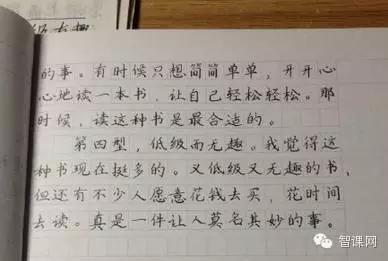 级有趣
的事。有时候只想简简单单，开开心
心地读一本书，让自己轻松轻松。那
时候，读这种书是最合适的。
第四型，低级而无趣。我觉得这
种书现在挺多的。又低级又无趣的书，
但还有不少人愿意花钱去买，花时间
去读。真是一件让人莫名其妙的事。
智课网